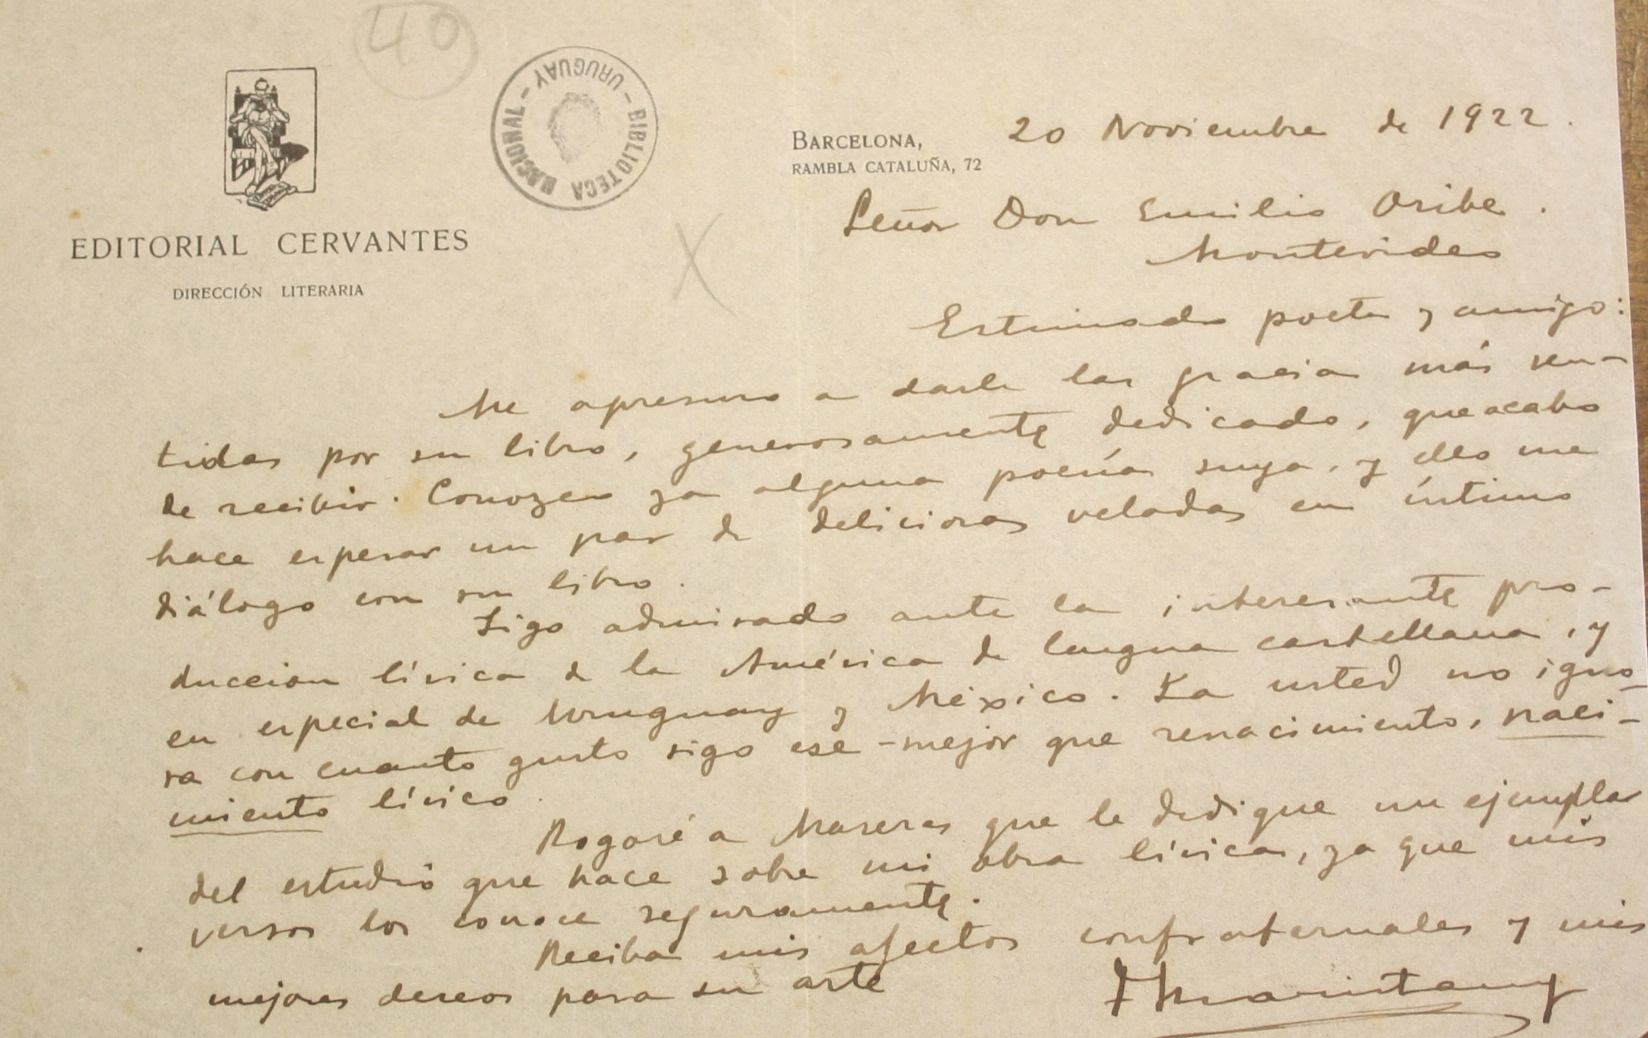 40
BIBLIOTECA NACIONAL - URUGUAY -
EDITORIAL CERVANTES
DIRECCIÓN LITERARIA
BARCELONA,
RAMBLA CATALUÑA, 72
20 Noviembre de 1922.
Señor Don Emilio Oribe.
Montevideo
Estimado poeta y amigo:
Me apresuro a darle las gracias más sen-
tidas por su libro, generosamente dedicado, que acabo
de recibir. Conozco ya alguna poesía suya, y ello me
hace esperar un par de deliciosas veladas en íntimo
diálogo con su libro.
Sigo admirado ante la interesante pro-
duccion lírica de la América de lengua castellana, y
en especial de Uruguay y México. Ya usted no igno-
ra con cuanto gusto sigo ese -mejor que renacimiento, naci-
miento lírico.
Rogaré a Maseras que le dedique un ejemplar
del estudio que hace sobre mi obra lírica, ya que mis
versos los conoce seguramente.
Reciba mis afectos confraternales y mis
mejores deseos para su arte
F Maristany